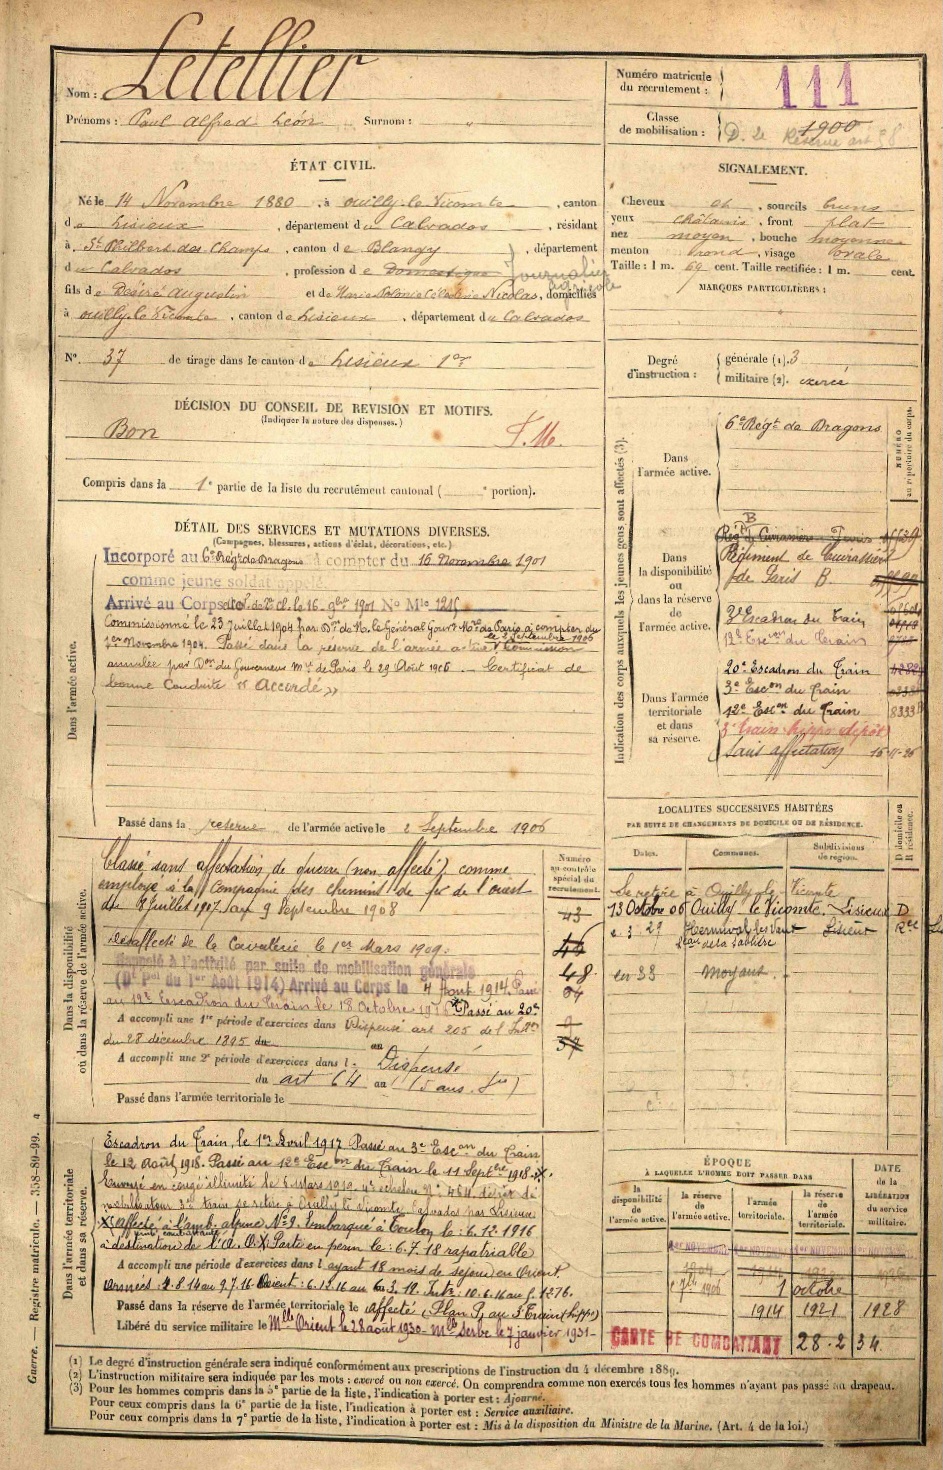 Nom : Letellier
Prénoms : Paul Alfred Léon Surnom : "
Numéro matricule du recrutement : 111
Classe de mobilisation : 1900
D. de Réserve art 58
ÉTAT CIVIL.
Né le 14 Novembre 1880, à Ouilly-le-Vicomte, canton
de Lisieux, département du Calvados, résidant
à St Philbert-des-Champs, canton de Blangy, département
du Calvados, profession de Domestique Journalier agricole
fils de Désiré Augustin et de Nicolas, domiciliés
à Ouilly-le-Vicomte, canton de Lisieux, département du Calvados
N° 37 de tirage dans le canton de Lisieux 1er
SIGNALEMENT.
Cheveux , sourcils bruns
yeux châtains, front plat
nez moyen, bouche moyenne
menton rond, visage ovale
Taille : 1 m. 69 cent. Taille rectifiée : 1 m. cent.
MARQUES PARTICULIÈRES :
Degré d'instruction : générale (1). 3
militaire (2). exercé
DÉCISION DU CONSEIL DE REVISION ET MOTIFS.
(Indiquer la nature des dispenses.)
Bon
Compris dans la 1e partie de la liste du recrutement cantonal ( e portion).
DÉTAIL DES SERVICES ET MUTATIONS DIVERSES.
(Campagnes, blessures, actions d'éclat, décorations, etc.)
Dans l'armée active.
Incorporé au 6e Régt de Dragons à compter du 16 Novembre 1901
comme jeune soldat appelé.
Arrivé au Corps et sol. de 2e cl. le 16 9bre 1901 No Mle 1215
Commissionné le 23 Juillet 1904 par Don de M. le Général Gouvr Mre de Paris à compter du
1er Novembre 1904. Passé dans la réserve de l'armée active le 2 Septembre 1906 Commission
annulée par Don du Gouverneur Mre de Paris le 29 Août 1906 - Certificat de
bonne Conduite "Accordé"
Passé dans la réserve de l'armée active le 2 Septembre 1906
Indication des corps auxquels les jeunes gens sont affectés (3).
NUMÉRO au répertoire du corps.
Dans l'armée active.
6e Régt de Dragons
Dans la disponibilité ou dans la réserve de l'armée active.
Régt de Cuirassiers B
Régiment de Cuirassiers
de Paris B.
3e Escadron du Train
12e Escon du Train
Dans l'armée territoriale et dans sa réserve.
20e Escadron du Train
3e Escon du Train
12e Escon du Train 8333
3e Train hippo dépôt
Sans affectation
LOCALITÉS SUCCESSIVES HABITÉES
PAR SUITE DE CHANGEMENTS DE DOMICILE OU DE RÉSIDENCE.
Dates. Communes. Subdivisions de région. D domicile ou R résidence.
Se retire à Ouilly-le-Vicomte
13 Octobre 06 Ouilly le Vicomte. Lisieux D
Hermival les Vaux Lisieux
en 33 Moyaux
Dans la disponibilité ou dans la réserve de l'armée active.
Numéro au contrôle spécial du recrutement.
Classé sans affectation de guerre (non affecté) comme
employé à la Compagnie des chemins de fer de l'ouest
du 8 Juillet 1907 au 9 Septembre 1908
43
Désaffecté de la Cavalerie le 1er Mars 1909.
Rappelé à l'activité par suite de mobilisation générale
48
(Dt Pal du 1er Août 1914) Arrivé au Corps le 4 Août 1914. Passé
au 12e Escadron du Train le 18 Octobre Passé au 20e
A accompli une 1re période d'exercices dans Dispensé art 205 de l'Inst.
du 28 décembre 1895 du au
A accompli une 2e période d'exercices dans l Dispensé
du art 64 au
Passé dans l'armée territoriale le
Dans l'armée territoriale et dans sa réserve.
Escadron du Train, le 1er Avril 1917 Passé au 3e Escon du Train
le 12 Août 1918. Passé au 12e Escon du Train le 11 Septbre 1918.
Envoyé en congé illimité le 5 Mars 1919
se retire à Ouilly le Vicomte Calvados par Lisieux
affecté à l'amb. alpine No 9. Embarqué à Toulon le : 6.12.1916
à destination de l'A. O. Parte en perm le : 6.7.18 rapatriable
A accompli une période d'exercices dans l ayant 18 mois de séjour en Orient.
Passé dans la réserve de l'armée territoriale le affecté (Plan P) au 3e Train (hippo)
Libéré du service militaire le Mlle Orient le 28 août 1930 - Mlle Serbe le 7 janvier 1931 -
ÉPOQUE
À LAQUELLE L'HOMME DOIT PASSER DANS
la disponibilité de l'armée active. la réserve de l'armée active. l'armée territoriale. la réserve de l'armée territoriale. DATE de la LIBÉRATION du service militaire.
1904 1914
1 7bre 1906 1 octobre
1914 1921 1928
CARTE DE COMBATTANT 28-2 34
(1) Le degré d'instruction générale sera indiqué conformément aux prescriptions de l'instruction du 4 décembre 1889.
(2) L'instruction militaire sera indiquée par les mots : exercé ou non exercé. On comprendra comme non exercés tous les hommes n'ayant pas passé au drapeau.
(3) Pour les hommes compris dans la 5e partie de la liste, l'indication à porter est : Ajourné.
Pour ceux compris dans la 6e partie de la liste, l'indication à porter est : Service auxiliaire.
Pour ceux compris dans la 7e partie de la liste, l'indication à porter est : Mis à la disposition du Ministre de la Marine. (Art. 4 de la loi.)
Guerre. — Registre matricule. — 358-89-99. 4